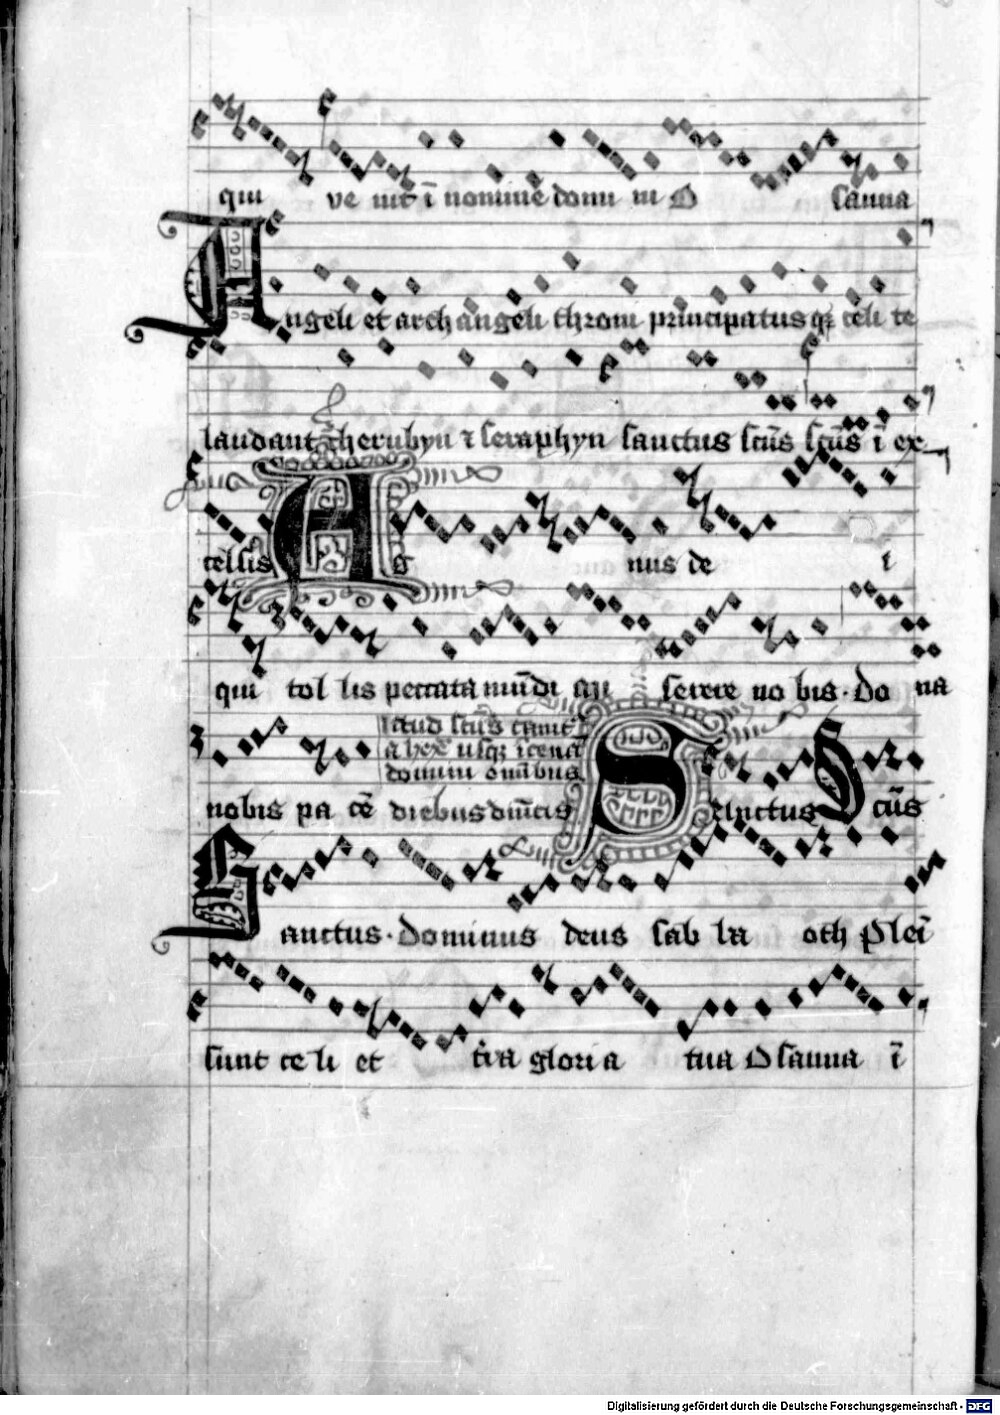 qui ve nit ī nomine domi ni O sanna
Angeli et archangeli throni principatusqꝫ celi te
laudant cherubyn ⁊ seraphyn sanctus scūs scūs ī ex
celsis Ag nus de i
qui tol lis peccata mūdi mi serere no bis · do na
Istud scūs
domini omībus
nobis pa cē diebus Sanctus Scūs
Sanctus · dominus deus sab ba oth Pleī
sunt ce li et t̄ra glori a tua Osanna ī
Digitalisierung gefördert durch die Deutsche Forschungsgemeinschaft - DFG